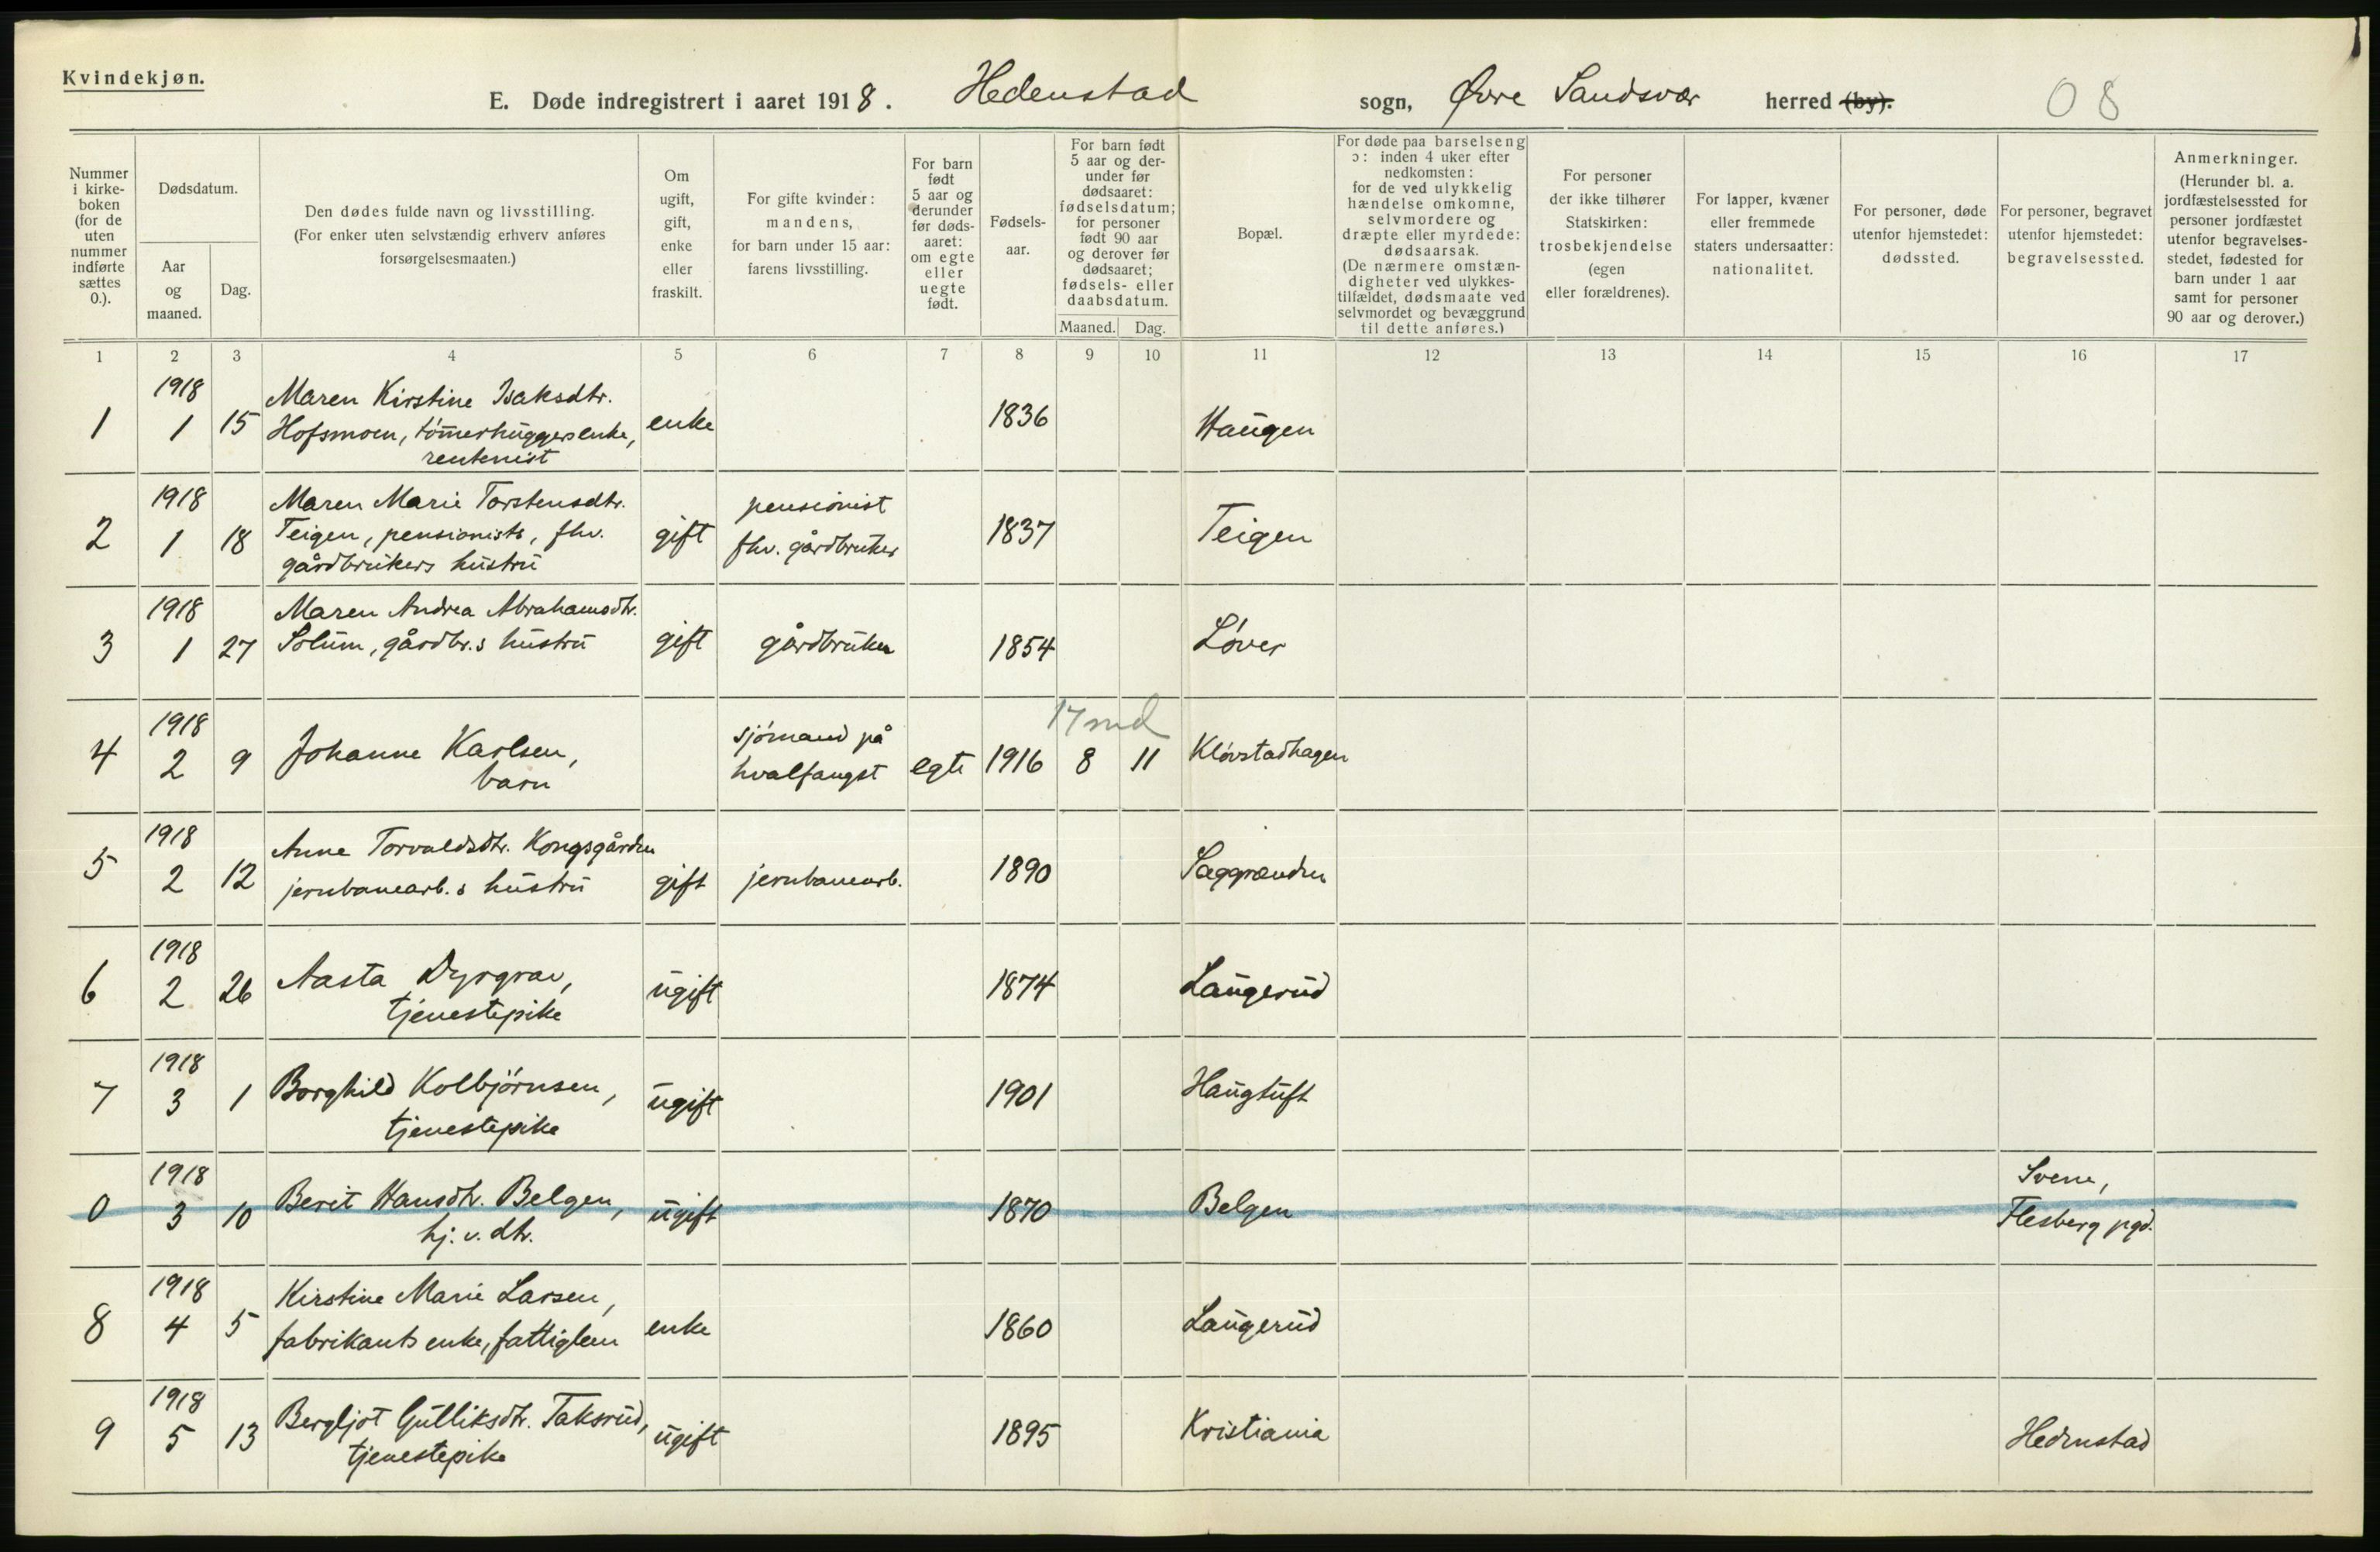 Kvindekjøn.
E. Døde indregistrert i aaret 1918. Hedenstad sogn, Øvre Sandsvær herred (by).
08
Nummer i kirkeboken (for de uten nummer indførte sættes 0.).
Dødsdatum.
Aar og maaned.
Dag.
Den dødes fulde navn og livsstilling.
(For enker uten selvstændig erhverv anføres
forsørgelsesmaaten.)
Om
ugift,
gift,
enke
eller
fraskilt.
For gifte kvinder:
mandens,
for barn under 15 aar:
farens livsstilling.
For barn
født
5 aar og
derunder
før døds-
aaret:
om egte
eller
uegte
født.
Fødsels-
aar.
For barn født
5 aar og der-
under før
dødsaaret:
fødselsdatum;
for personer
født 90 aar
og derover før
dødsaaret;
fødsels- eller
daabsdatum.
Maaned. Dag.
Bopæl.
For døde paa barselseng
ɔ: inden 4 uker efter
nedkomsten:
for de ved ulykkelig
hændelse omkomne,
selvmordere og
dræpte eller myrdede:
dødsaarsak.
(De nærmere omstæn-
digheter ved ulykkes-
tilfældet, dødsmaate ved
selvmordet og bevæggrund
til dette anføres.)
For personer
der ikke tilhører
Statskirken:
trosbekjendelse
(egen
eller forældrenes).
For lapper, kvæner
eller fremmede
staters undersaatter:
nationalitet.
For personer, døde
utenfor hjemstedet:
dødssted.
For personer, begravet
utenfor hjemstedet:
begravelsessted.
Anmerkninger.
(Herunder bl. a.
jordfæstelsessted for
personer jordfæstet
utenfor begravelses-
stedet, fødested for
barn under 1 aar
samt for personer
90 aar og derover.)
1 2 3 4 5 6 7 8 9 10 11 12 13 14 15 16 17
1918 Maren Kirstine Isaksdtr.
1 1 15 Hofsmoen, tømerhuggers enke, enke 1836 Haugen
rentenist
1918 Maren Marie Torstensdtr. pensionist
2 1 18 Teigen, pensionists, fhv. gift fhv. gårdbruker 1837 Teigen
gårdbrukers hustru
1918 Maren Andrea Abrahamsdtr.
3 1 27 Solum, gårdbr.s hustru gift gårdbruker 1854 Løver
17 md
1918 sjømand på
4 2 9 Johanne Karlsen, hvalfangst egte 1916 8 11 Kløvstadhagen
barn
1918 Anne Torvaldsdtr. Kongsgården
5 2 12 jernbanearb.s hustru gift jernbanearb. 1890 Saggrenden
1918
6 2 26 Aasta Dyrgrav, ugift 1874 Laugerud
tjenestepike
1918
7 3 1 Borghild Kolbjørnsen, ugift 1901 Haugtuft
tjenestepike
1918 Svene,
0 3 10 Berit Hansdtr. Belgen, ugift 1870 Belgen Flesberg pgd.
hj. v. dtr.
1918 Kirstine Marie Larsen,
8 4 5 fabrikants enke, fattiglem enke 1860 Laugerud
1918
9 5 13 Bergljot Gulliksdtr. Taksrud, ugift 1895 Kristiania Hedenstad
tjenestepike